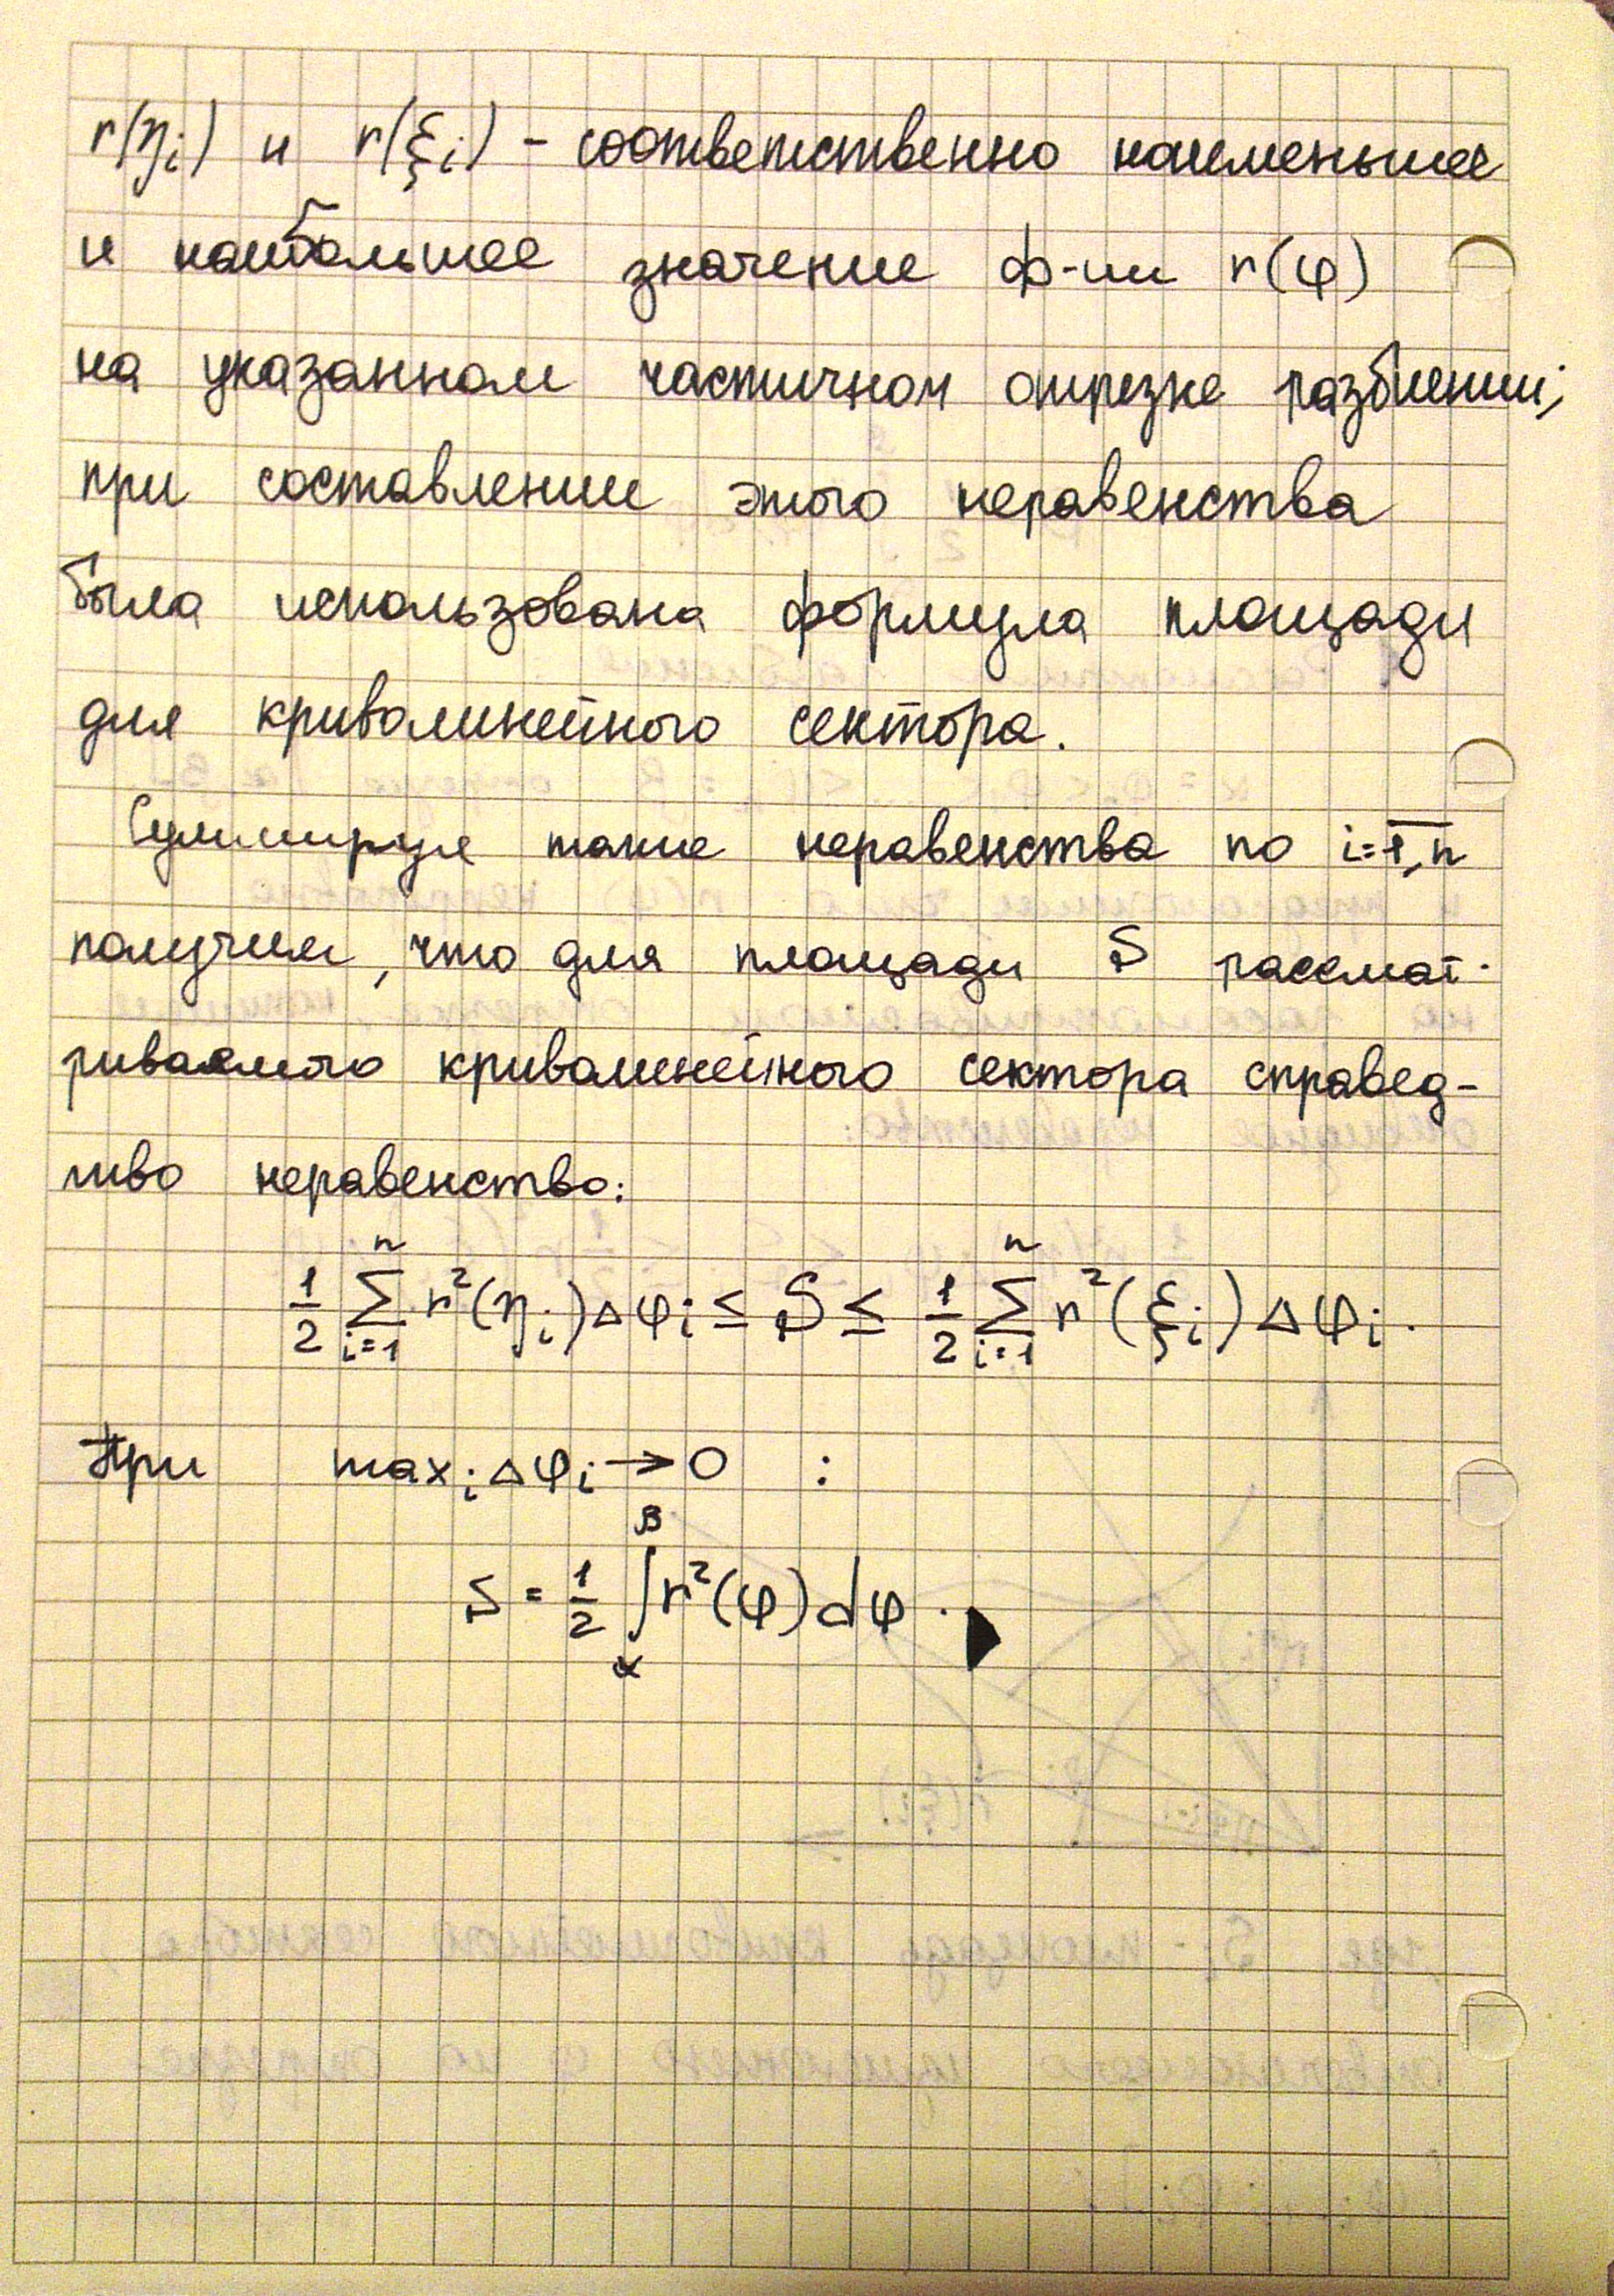 r(ηᵢ) и r(ξᵢ) - соответственно наименьшее
и наибольшее значение ф-ии r(φ)
на указанном частичном отрезке разбиении;
при составлении этого неравенства
была использована формула площади
для криволинейного сектора.
Суммируя такие неравенства по i=1,n
получим, что для площади S рассмат-
риваемого криволинейного сектора справед-
ливо неравенство:
1/2 ∑ᵢ₌₁ⁿ r²(ηᵢ)Δφᵢ ≤ S ≤ 1/2 ∑ᵢ₌₁ⁿ r²(ξᵢ)Δφᵢ.
При maxᵢ Δφᵢ → 0 :
S = 1/2 ∫_α^β r²(φ)dφ.